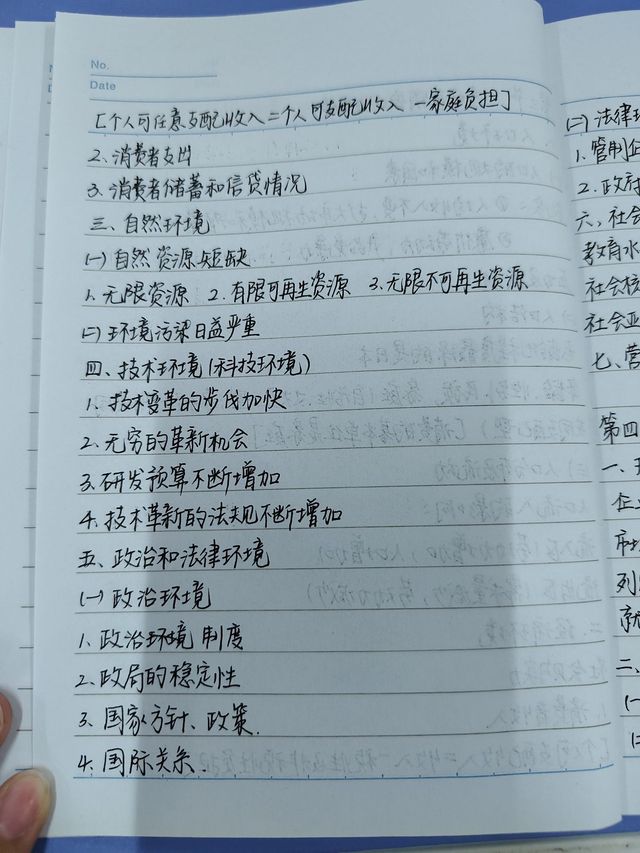 No.
Date
[个人可任意支配收入=个人可支配收入 -家庭负担]
2.消费者支出
3.消费者储蓄和信贷情况
三、自然环境
(一)自然资源短缺
1.无限资源 2.有限可再生资源 3.无限不可再生资源
(二)环境污染日益严重
四、技术环境(科技环境)
1.技术变革的步伐加快
2.无穷的革新机会
3.研发预算不断增加
4.技术革新的法规不断增加
五、政治和法律环境
(一)政治环境
1.政治环境制度
2.政局的稳定性
3.国家方针、政策.
4.国际关系.
(二)法律环
1.管制企
2.政府
六、社会
教育水
社会核
社会亚
七、营
第四
一、
企
市场
列
就
二、
(一
(二